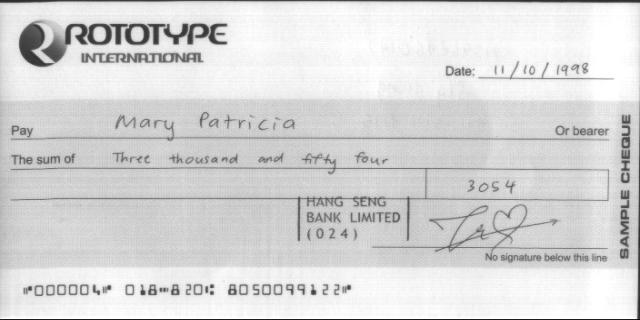 ROTOTYPE
INTERNATIONAL
Date: 11/10/1998
Pay Mary Patricia Or bearer
The sum of Three thousand and fifty four
3054
HANG SENG
BANK LIMITED
(024)
No signature below this line
SAMPLE CHEQUE
⑈000004⑈ 018⑉820⑆ 8050099122⑈